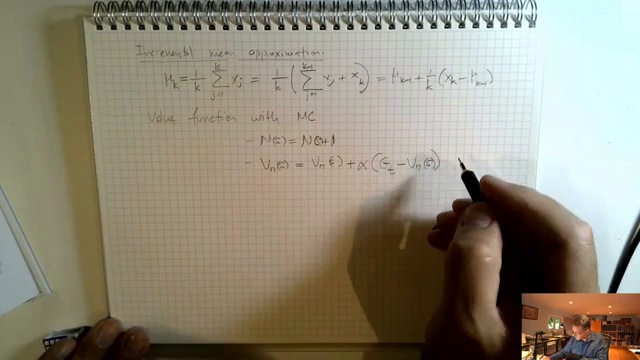 Incremental mean approximation
μ_k = 1/k ∑_{j=1}^{k} x_j = 1/k ( ∑_{j=1}^{k-1} x_j + x_k ) = μ_{k-1} + 1/k (x_k − μ_{k-1})
Value function with MC
- N(s) = N(s)+1
- V_π(s) = V_π(s) + α (G_t − V_π(s))